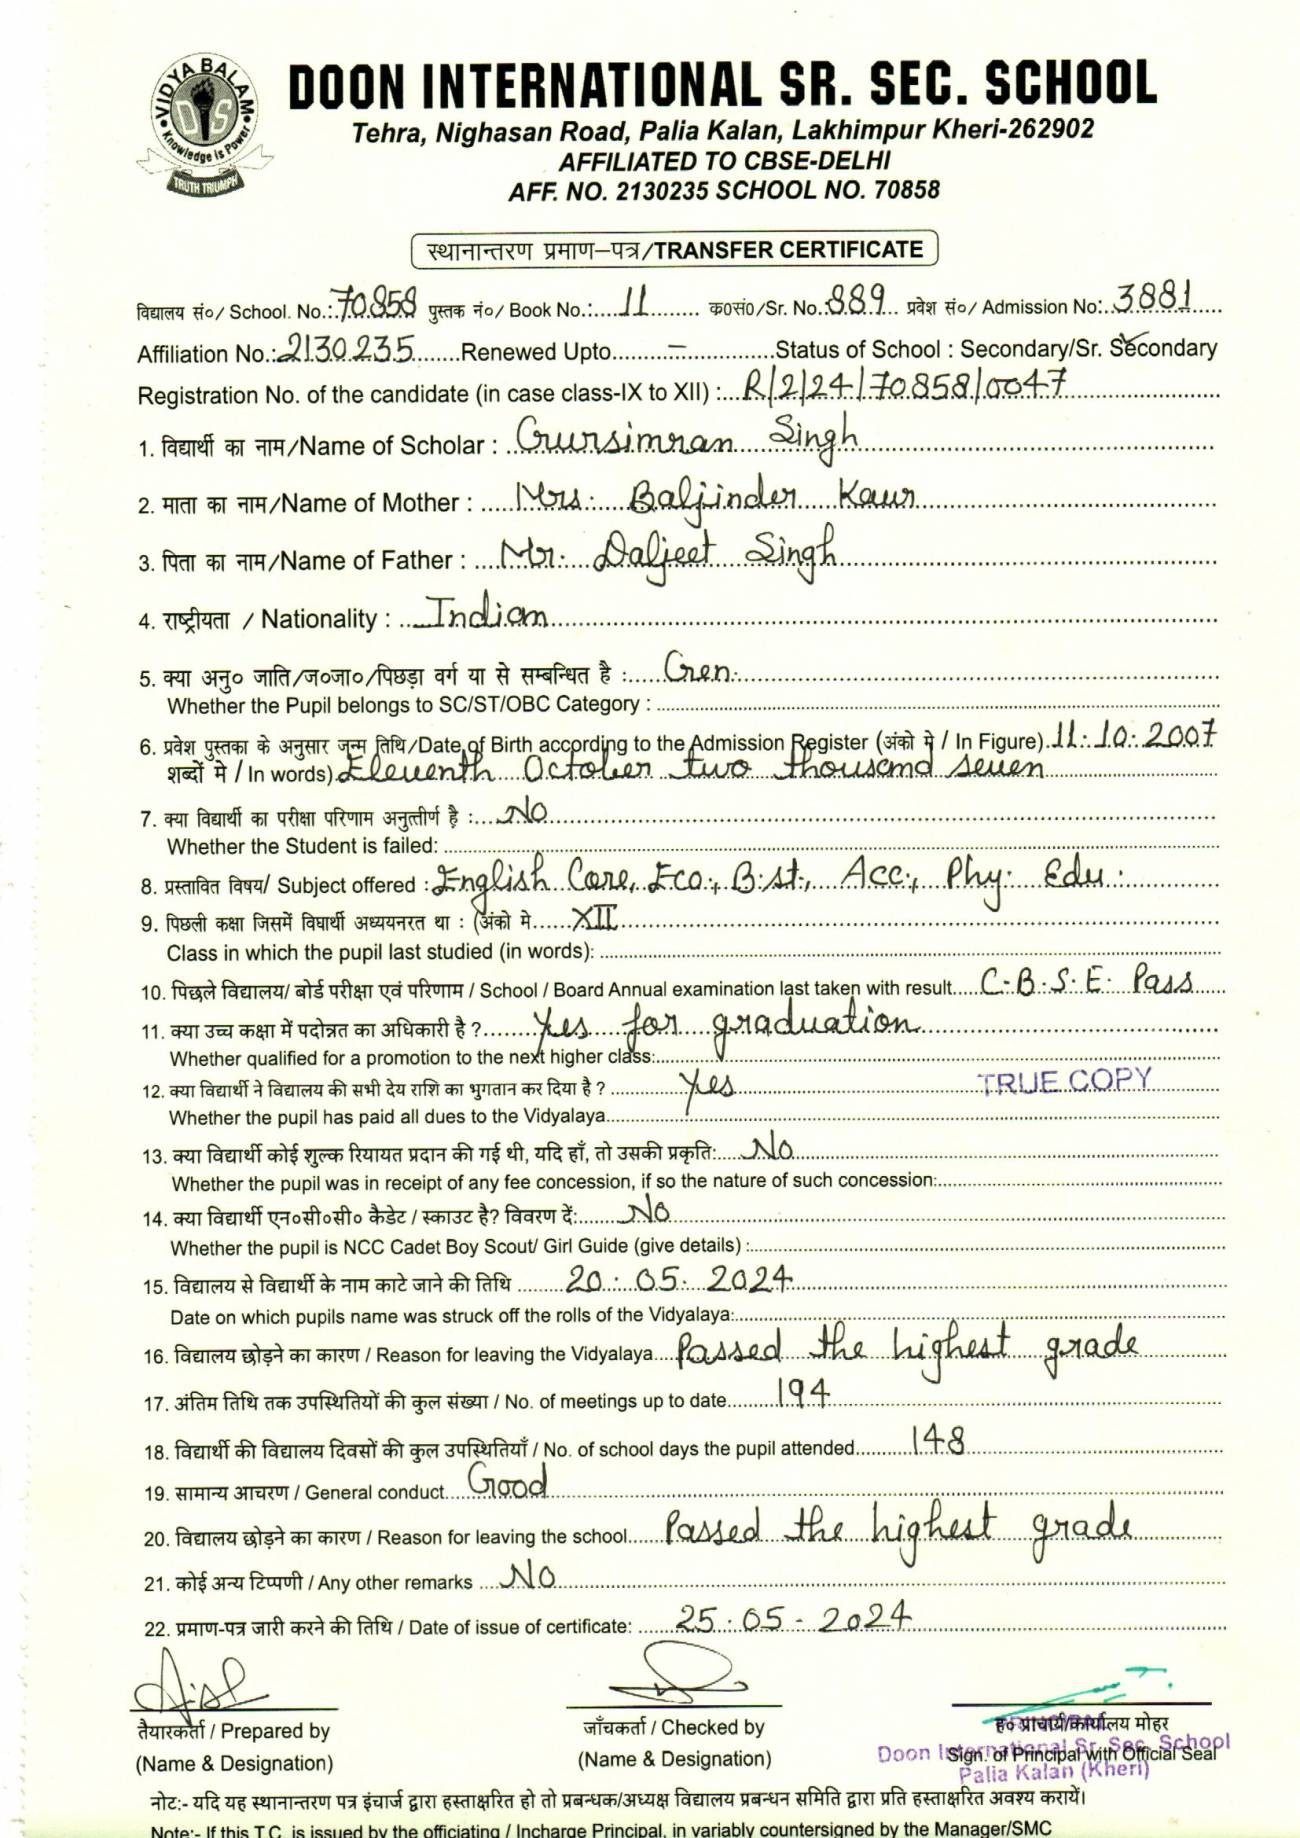 VIDYA BALAM
DIS
Knowledge is Power
TRUTH TRIUMPH
DOON INTERNATIONAL SR. SEC. SCHOOL
Tehra, Nighasan Road, Palia Kalan, Lakhimpur Kheri-262902
AFFILIATED TO CBSE-DELHI
AFF. NO. 2130235 SCHOOL NO. 70858
स्थानान्तरण प्रमाण–पत्र/TRANSFER CERTIFICATE
विद्यालय सं०/ School. No.: 70858 पुस्तक नं०/ Book No.: 11 क०सं०/Sr. No. 889 प्रवेश सं०/ Admission No: 3881
Affiliation No.: 2130235 Renewed Upto – Status of School : Secondary/Sr. Secondary
Registration No. of the candidate (in case class-IX to XII) : R/2/24/70858/0047
1. विद्यार्थी का नाम/Name of Scholar : Gursimran Singh
2. माता का नाम/Name of Mother : Mrs. Baljinder Kaur
3. पिता का नाम/Name of Father : Mr. Daljeet Singh
4. राष्ट्रीयता / Nationality : Indian
5. क्या अनु० जाति/ज०जा०/पिछड़ा वर्ग या से सम्बन्धित है : Gen.
Whether the Pupil belongs to SC/ST/OBC Category :
6. प्रवेश पुस्तका के अनुसार जन्म तिथि/Date of Birth according to the Admission Register (अंको मे / In Figure) 11.10.2007
शब्दों मे / In words) Eleventh October two thousand seven
7. क्या विद्यार्थी का परीक्षा परिणाम अनुत्तीर्ण है : No
Whether the Student is failed:
8. प्रस्तावित विषय/ Subject offered : English Core, Eco., B.st., Acc., Phy. Edu.
9. पिछली कक्षा जिसमें विघार्थी अध्ययनरत था : (अंको मे XII
Class in which the pupil last studied (in words):
10. पिछले विद्यालय/ बोर्ड परीक्षा एवं परिणाम / School / Board Annual examination last taken with result C.B.S.E. Pass
11. क्या उच्च कक्षा में पदोन्नत का अधिकारी है ? Yes for graduation
Whether qualified for a promotion to the next higher class:
12. क्या विद्यार्थी ने विद्यालय की सभी देय राशि का भुगतान कर दिया है ? Yes TRUE COPY
Whether the pupil has paid all dues to the Vidyalaya
13. क्या विद्यार्थी कोई शुल्क रियायत प्रदान की गई थी, यदि हाँ, तो उसकी प्रकृति: No
Whether the pupil was in receipt of any fee concession, if so the nature of such concession:
14. क्या विद्यार्थी एन०सी०सी० कैडेट / स्काउट है? विवरण दें: No
Whether the pupil is NCC Cadet Boy Scout/ Girl Guide (give details) :
15. विद्यालय से विद्यार्थी के नाम काटे जाने की तिथि 20.05.2024
Date on which pupils name was struck off the rolls of the Vidyalaya:
16. विद्यालय छोड़ने का कारण / Reason for leaving the Vidyalaya Passed the highest grade
17. अंतिम तिथि तक उपस्थितियों की कुल संख्या / No. of meetings up to date 194
18. विद्यार्थी की विद्यालय दिवसों की कुल उपस्थितियाँ / No. of school days the pupil attended 148
19. सामान्य आचरण / General conduct Good
20. विद्यालय छोड़ने का कारण / Reason for leaving the school Passed the highest grade
21. कोई अन्य टिप्पणी / Any other remarks No
22. प्रमाण-पत्र जारी करने की तिथि / Date of issue of certificate: 25.05-2024
तैयारकर्ता / Prepared by जाँचकर्ता / Checked by ह० प्राचार्य/कार्यालय मोहर
PRINCIPAL
(Name & Designation) (Name & Designation) Sign. of Principal with Official Seal
Doon International Sr. Sec. School
Palia Kalan (Kheri)
नोटः- यदि यह स्थानान्तरण पत्र इंचार्ज द्वारा हस्ताक्षरित हो तो प्रबन्धक/अध्यक्ष विद्यालय प्रबन्धन समिति द्वारा प्रति हस्ताक्षरित अवश्य करायें।
Note:- If this T.C. is issued by the officiating / Incharge Principal, in variably countersigned by the Manager/SMC